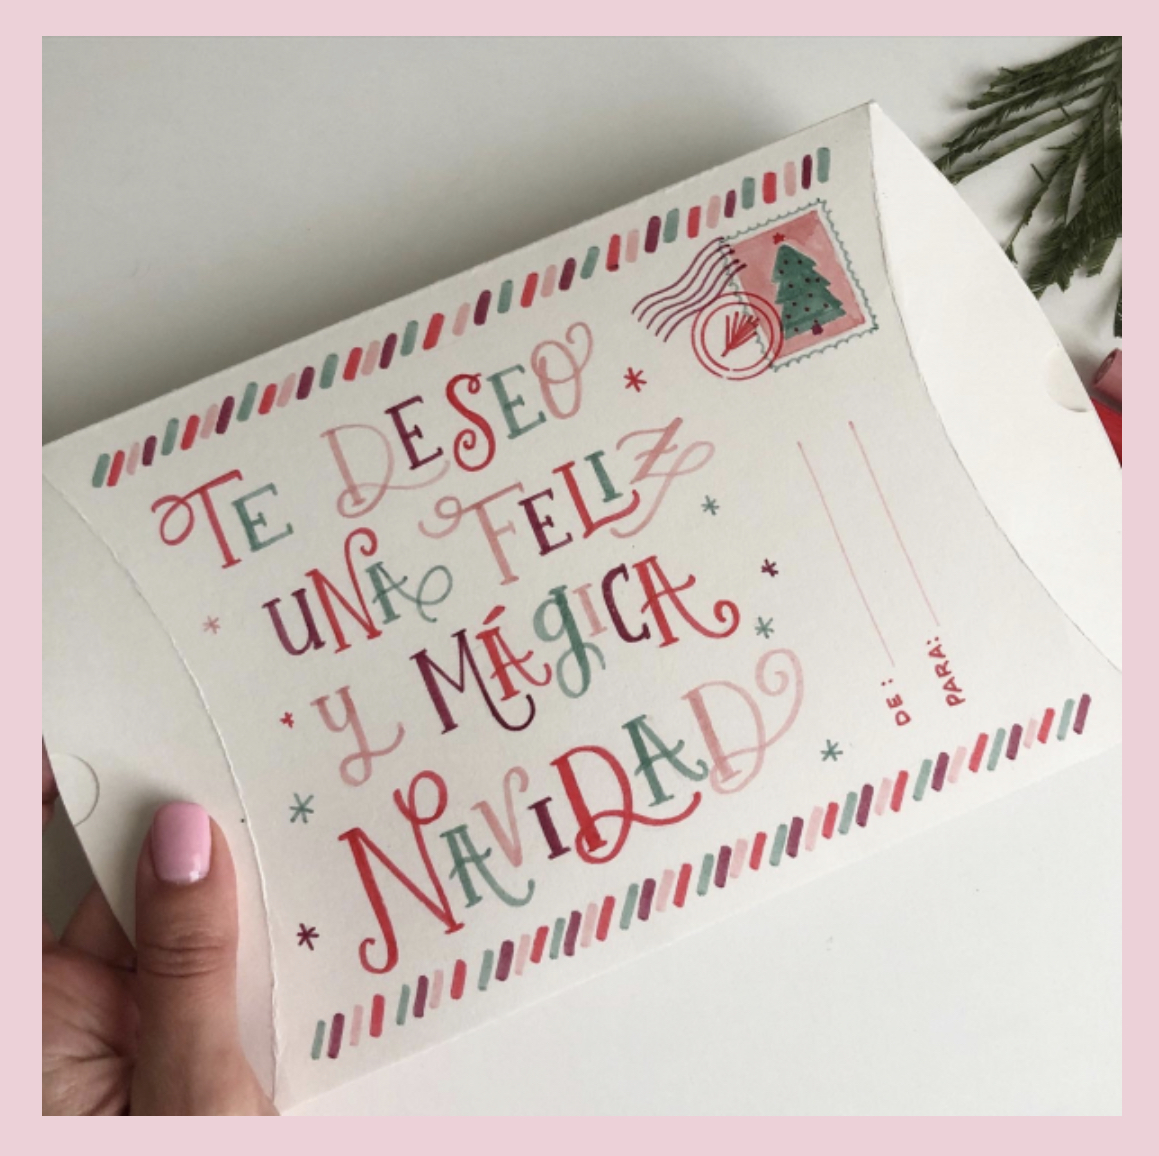 TE DESEO
UNA FELIZ
Y MÁGICA
NAVIDAD
DE:
PARA: